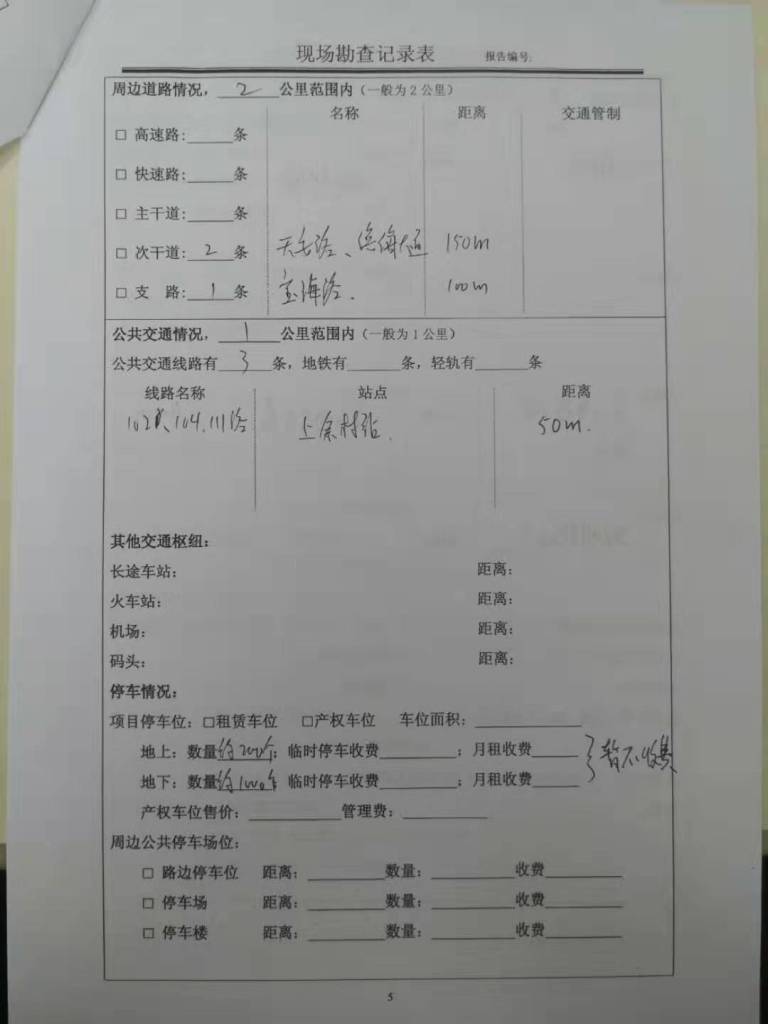 现场勘查记录表 报告编号:
周边道路情况，2公里范围内（一般为2公里）
名称 距离 交通管制
□ 高速路:______条
□ 快速路:______条
□ 主干道:______条
□ 次干道:2条 天毛路、滨海大道 150m
□ 支 路:1条 宝海路. 100m
公共交通情况，1公里范围内（一般为1公里）
公共交通线路有3条，地铁有______条，轻轨有______条
线路名称 站点 距离
102、104.111路 上余村站. 50m.
其他交通枢纽：
长途车站： 距离：
火车站： 距离：
机场： 距离：
码头： 距离：
停车情况：
项目停车位：□租赁车位 □产权车位 车位面积：______
地上：数量约200个；临时停车收费______；月租收费______
地下：数量约1000个；临时停车收费______；月租收费______ 暂不收费
产权车位售价：______管理费：______
周边公共停车场位：
□ 路边停车位 距离：______数量：______收费______
□ 停车场 距离：______数量：______收费______
□ 停车楼 距离：______数量：______收费______
5